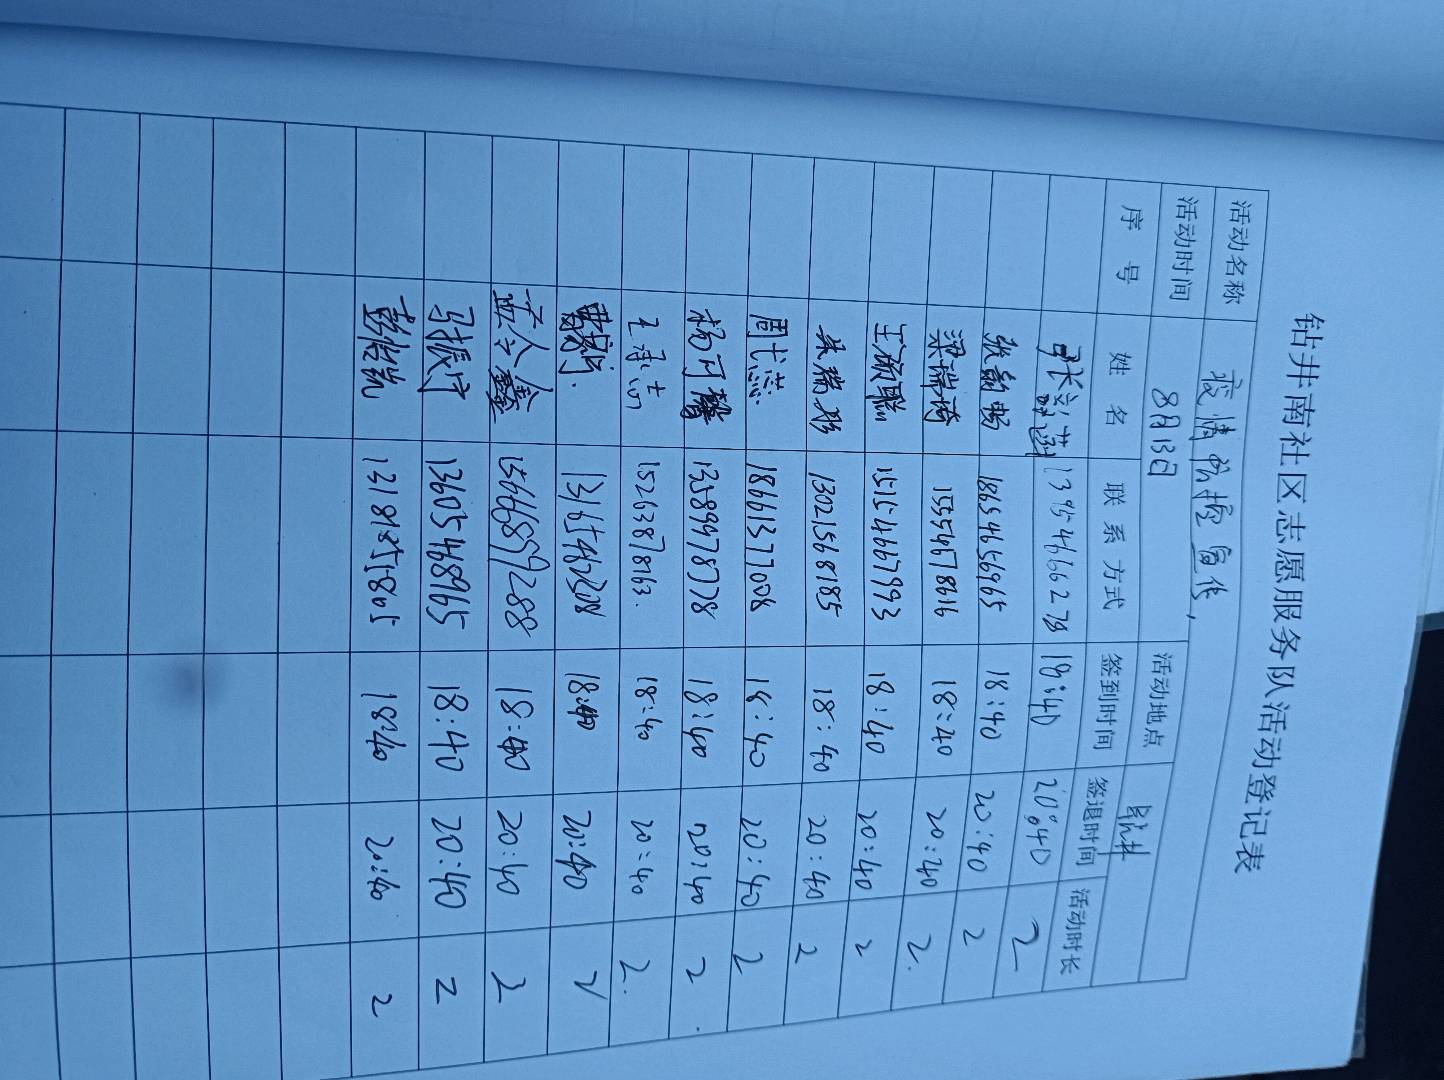 钻井南社区志愿服务队活动登记表
活动名称 疫情防控宣传
活动时间 8月13日 活动地点
序号 姓名 联系方式 签到时间 签退时间 活动时长
13954666278 18:40 20:40 2
18654656965 18:40 20:40 2
梁瑞琦 15554678616 18:40 20:40 2
15154667993 18:40 20:40 2
朱瑞彤 13021568185 18:40 20:40 2
周弋蕊 18661377008 18:40 20:40 2
杨可馨 13589978778 18:40 20:40 2
王承志 15263878763 18:40 20:40 2
18:40 20:40 2
15666897288 18:40 20:40 2
马振宁 13605468965 18:40 20:40 2
18:40 20:40 2